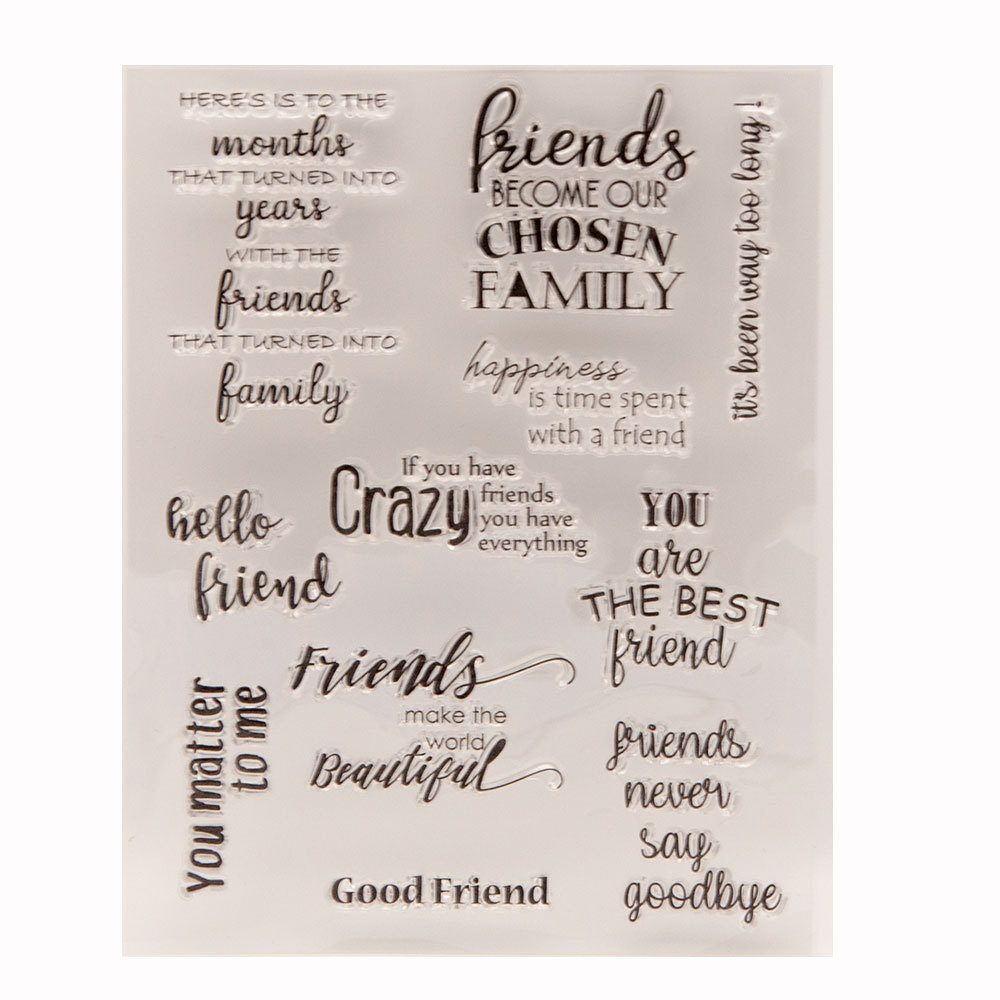 HERE'S IS TO THE
months
THAT TURNED INTO
years
WITH THE
friends
THAT TURNED INTO
family
friends
BECOME OUR
CHOSEN
FAMILY
it's been way too long!
happiness
is time spent
with a friend
If you have
Crazy friends
you have
everything
hello
friend
YOU
are
THE BEST
friend
Friends
make the
world
Beautiful
You matter
to me
friends
never
say
goodbye
Good Friend